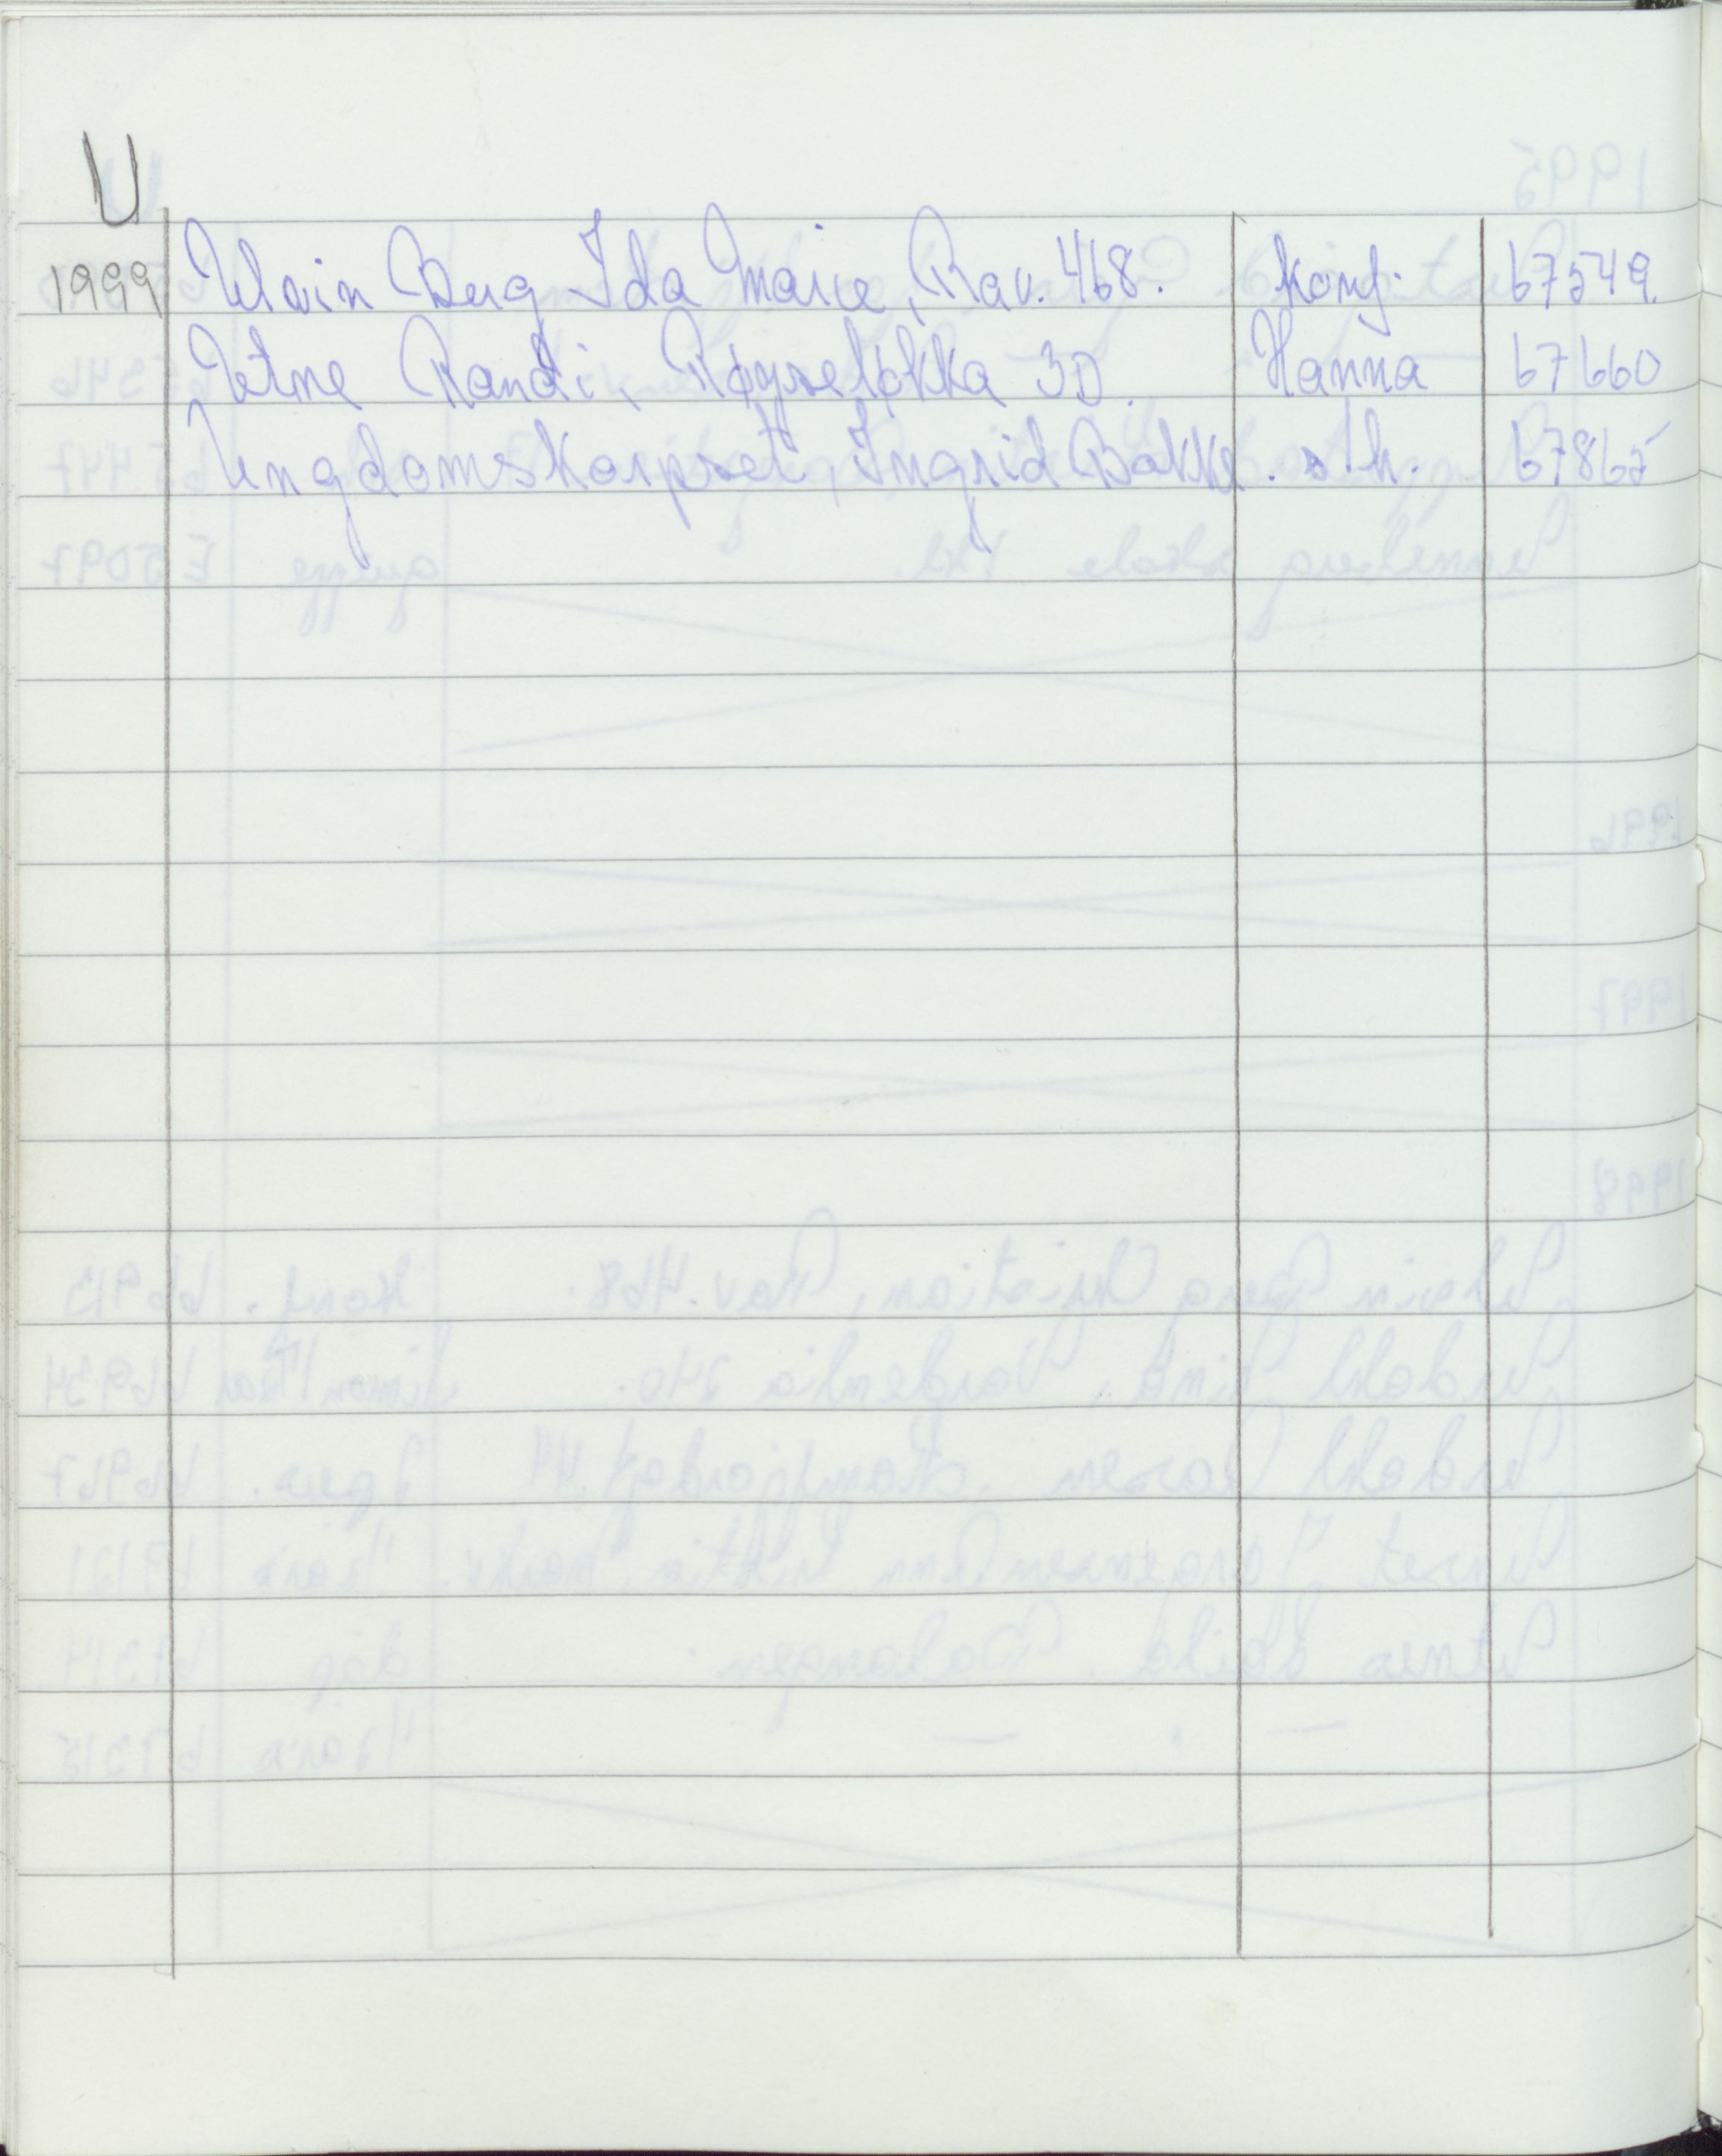 U
1999 Ulvin Berg Ida Marie, Rav. 468. Konf. 67549.
Utne Randi, Røyseløkka 3D. Hanna 67660
Ungdomskorpset, Ingrid Bakke. s.h. 67865